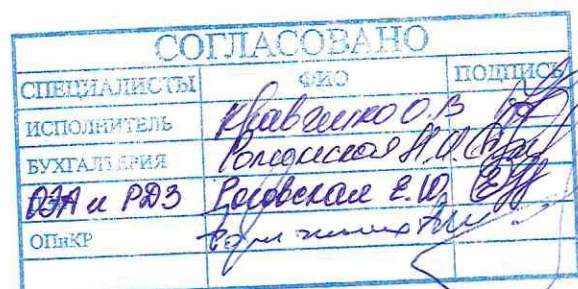 СОГЛАСОВАНО
СПЕЦИАЛИСТЫ ФИО ПОДПИСЬ
ИСПОЛНИТЕЛЬ Кравченко О.В
БУХГАЛТЕРИЯ
ОЭА и РДЗ Роговская Е.Ю.
ОПиКР